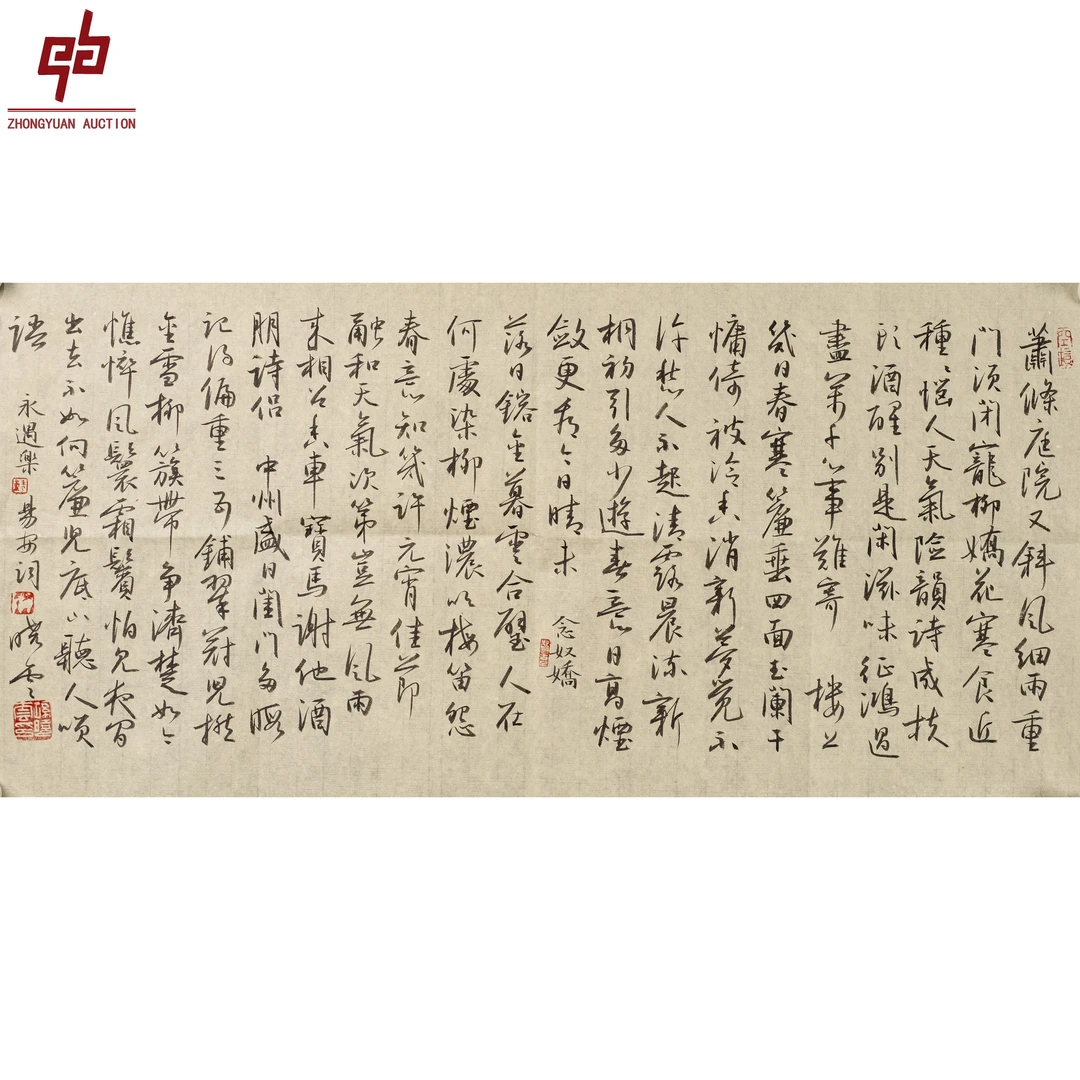 ZHONGYUAN AUCTION
蕭條庭院又斜风细雨重
门须闭寵柳嬌花寒食近
種種惱人天氣险韻诗成扶
头酒醒别是闲滋味征鴻过
盡萬千心事難寄 樓上
幾日春寒簾垂四面玉闌干
慵倚被冷香消新夢覺不
许愁人不起清露晨流新
桐初引多少遊春意日高煙
斂更看今日晴未
念奴嬌
落日鎔金暮雲合璧人在
何處染柳煙濃吹梅笛怨
春意知幾许元宵佳節
融和天氣次第豈無风雨
来相召香車寶馬谢他酒
朋诗侣 中州盛日閨门多暇
记得偏重三五鋪翠冠兒撚
金雪柳簇帶争濟楚如今
憔悴风鬟霜鬢怕见夜间
出去不如向簾兒底下聽人笑
语
永遇樂
易安词
晓雲